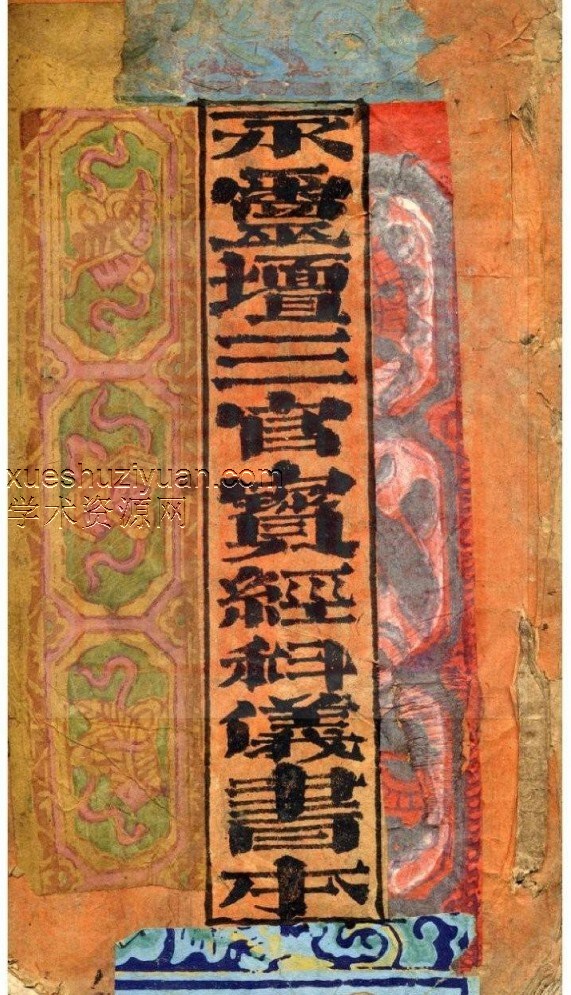 永靈壇三官寶經科儀書本
xueshuziyuan.com
学术资源网